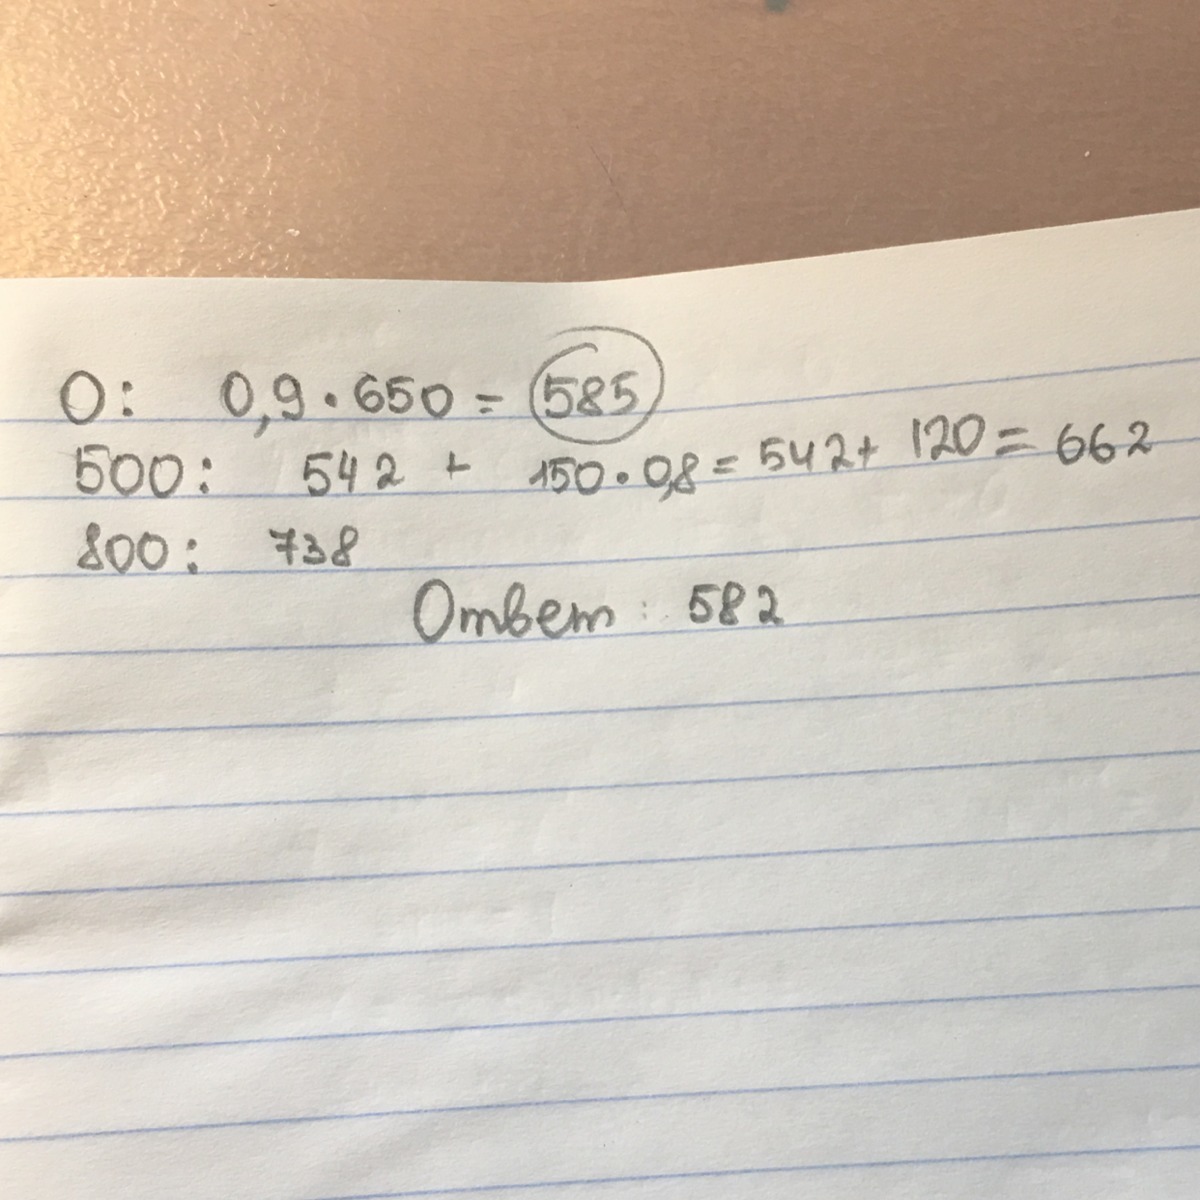 0: 0,9 · 650 = 585
500: 542 + 150 · 0,8 = 542 + 120 = 662
800: 738
Ответ: 582